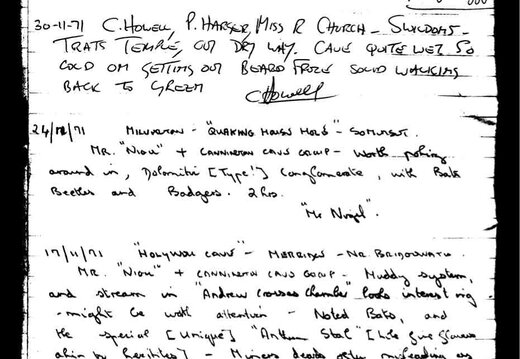 30-11-71 C. HOWELL, P. HARSER, MISS R CHURCH - SWILDONS -
TRATS TEMPLE, OUT DRY WAY. CAVE QUITE WET. SO
COLD ON GETTING OUT BEARD FROZE SOLID WALKING
BACK TO GREEN
CHowell
24/11/71 MILVERTON - "QUAKING HOUSE HOLE" - SOMERSET.
MR. "NIOU" + CANNINGTON CAVE GROUP - Worth poking
around in, Dolomitic [Type!] Conglomerate, with Bats
Beetles and Badgers. 2hrs.
"Mr
17/11/71 "HOLYWELL CAVE" - MERRIDGE - NR. BRIDGWATER
MR. "NIOU" + CANNINGTON CAVE GROUP - Muddy system,
and stream in "Andrew Crosses Chamber" looks interesting
- might be worth attention - Noted Bats, and
the special [Unique] "Anthem Stal" [Like
- Miners